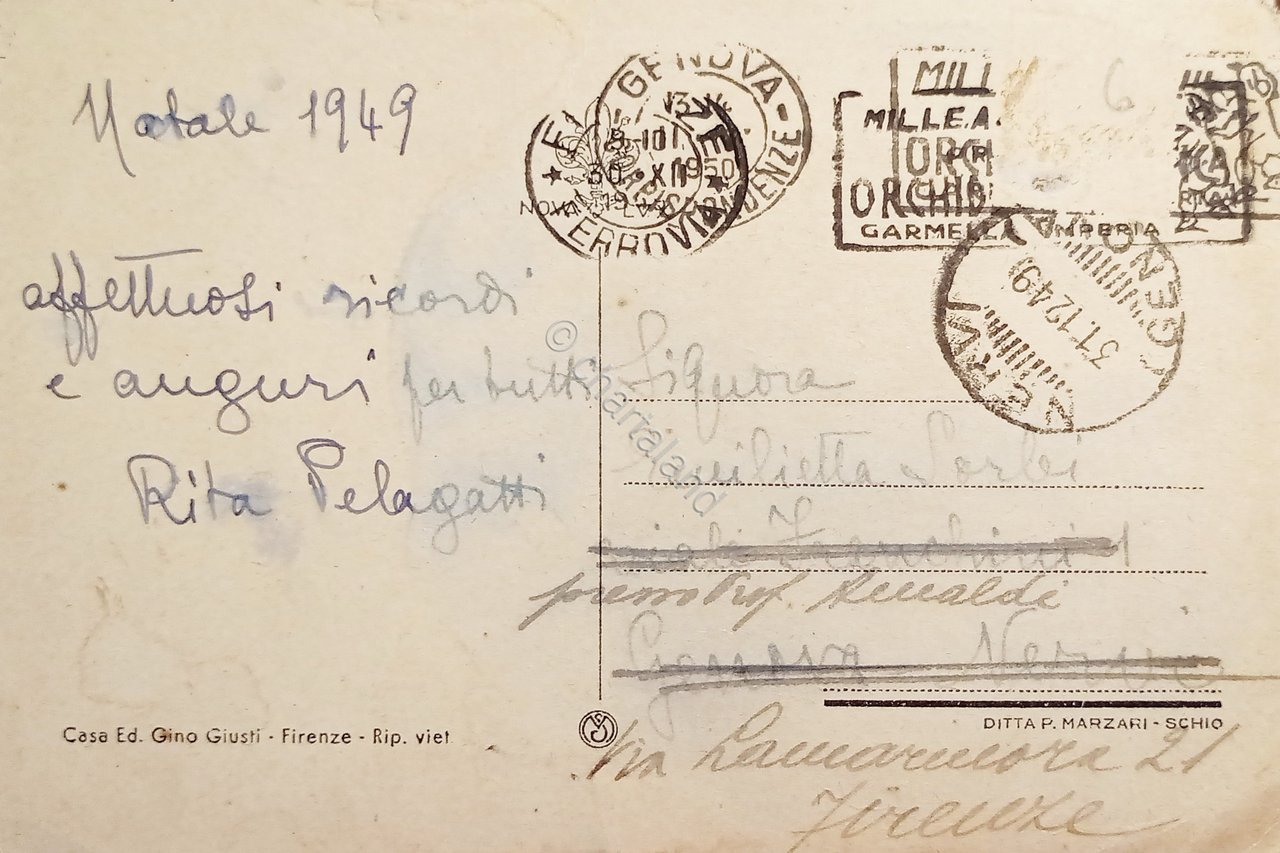 Natale 1949
affettuosi ricordi
e auguri per tutti
Rita Pelagatti
Casa Ed. Gino Giusti - Firenze - Rip. viet
GENOVA
FERROVIA
30 • XII
1950
MILLE
MILLE.A
ORCHID
GARMELLA IMPERIA
6
NERVI
(GENOVA)
31.12.49
© Chartaland
Signora
Giulietta Sorbi
viale Franchini 1
presso Prof. Rinaldi
Genova Nervi
DITTA P. MARZARI - SCHIO
Via Lamarmora 21
Firenze